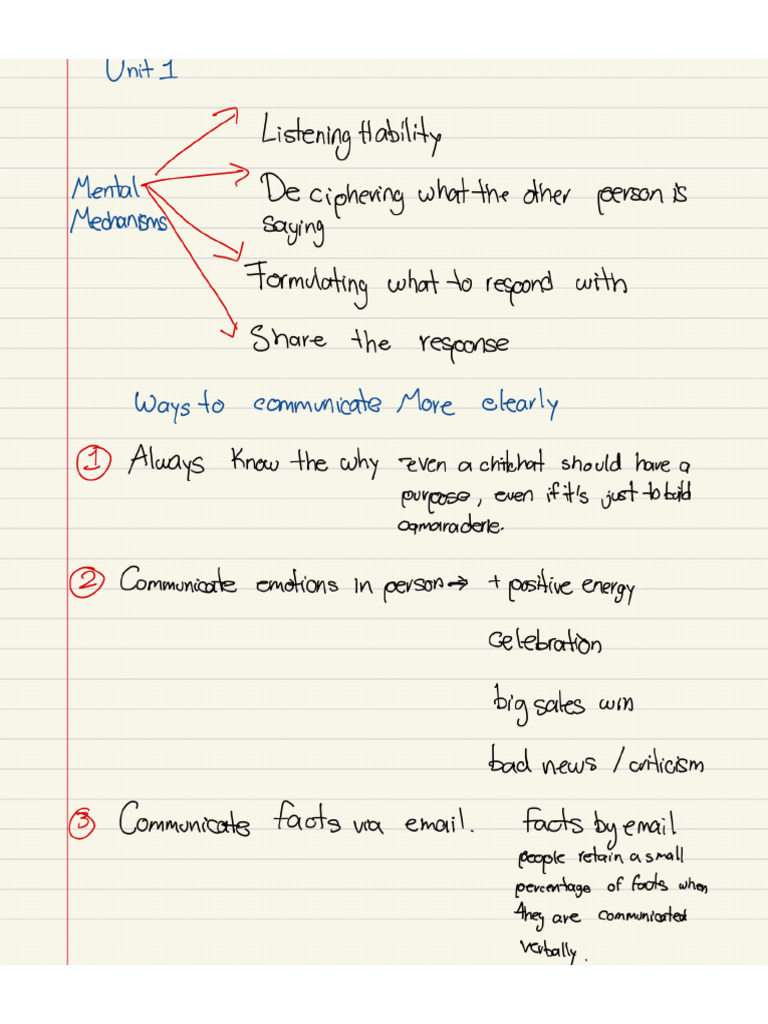 Unit 1
Listening Hability
Mental
Mechanisms
Deciphering what the other person is
saying
Formulating what to respond with
Share the response
Ways to communicate More clearly
① Always Know the why - even a chitchat should have a
purpose, even if it's just to build
camaraderie.
② Communicate emotions in person → + positive energy
celebration
big sales win
bad news / criticism
③ Communicate facts via email. facts by email
people retain a small
percentage of facts when
they are communicated
verbally.